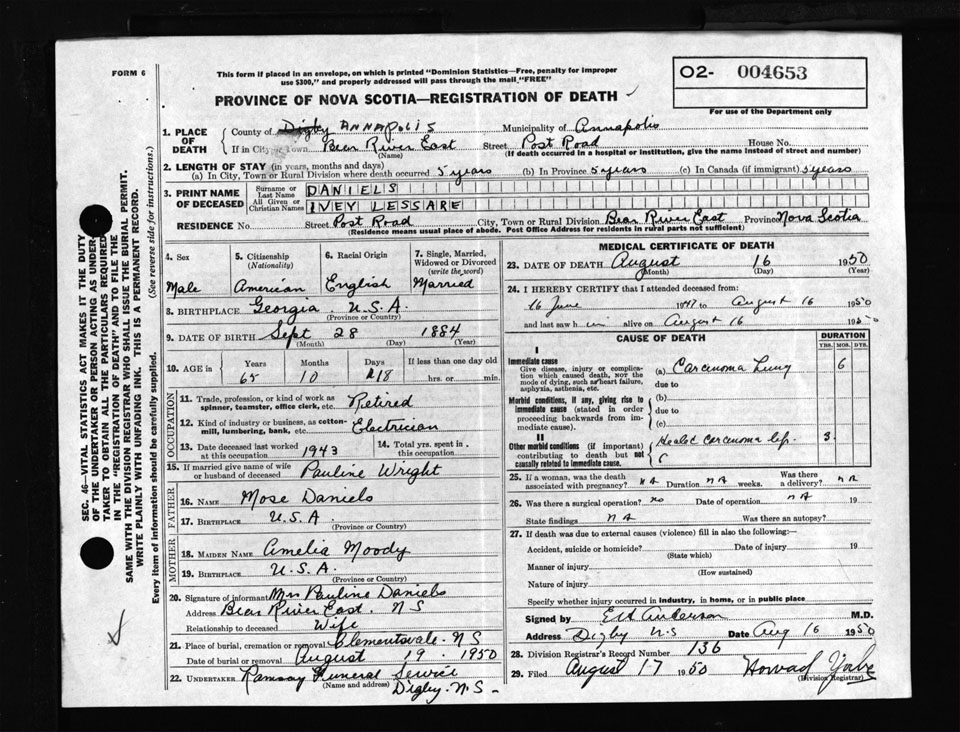 FORM 6
This form if placed in an envelope, on which is printed "Dominion Statistics—Free, penalty for improper
use $300," and properly addressed will pass through the mail "FREE"
O2- 004653
For use of the Department only
PROVINCE OF NOVA SCOTIA—REGISTRATION OF DEATH
1. PLACE OF DEATH
County of Digby ANNAPOLIS Municipality of Annapolis
If in City or Town Bear River East Street Post Road House No.
(Name) (If death occurred in a hospital or institution, give the name instead of street and number)
2. LENGTH OF STAY (in years, months and days)
(a) In City, Town or Rural Division where death occurred 5 years (b) In Province 5 years (c) In Canada (if immigrant) 5 years
3. PRINT NAME OF DECEASED
Surname or Last Name DANIELS
All Given or Christian Names IVEY LESSARE
RESIDENCE No. Street Post Road City, Town or Rural Division Bear River East Province Nova Scotia
(Residence means usual place of abode. Post Office Address for residents in rural parts not sufficient)
4. Sex
Male
5. Citizenship
(Nationality)
American
6. Racial Origin
English
7. Single, Married,
Widowed or Divorced
(write the word)
Married
8. BIRTHPLACE Georgia. U.S.A.
(Province or Country)
9. DATE OF BIRTH Sept 28 1884
(Month) (Day) (Year)
10. AGE in Years Months Days If less than one day old
65 10 18 hrs. or min.
OCCUPATION
11. Trade, profession, or kind of work as
spinner, teamster, office clerk, etc. Retired
12. Kind of industry or business, as cotton-
mill, lumbering, bank, etc. Electrician
13. Date deceased last worked
at this occupation 1943
14. Total yrs. spent in
this occupation
15. If married give name of wife
or husband of deceased Pauline Wright
FATHER
16. NAME Mose Daniels
17. BIRTHPLACE U.S.A.
(Province or Country)
MOTHER
18. MAIDEN NAME Amelia Moody
19. BIRTHPLACE U.S.A.
(Province or Country)
20. Signature of informant Mrs Pauline Daniels
Address Bear River East. N S
Relationship to deceased Wife
21. Place of burial, cremation or removal Clementsvale. N S
Date of burial or removal August 19. 1950
22. UNDERTAKER Ramsay Funeral Service
(Name and address) Digby. N.S-
MEDICAL CERTIFICATE OF DEATH
23. DATE OF DEATH August 16 1950
(Month) (Day) (Year)
24. I HEREBY CERTIFY that I attended deceased from:
16 June 1947 to August 16 1950
and last saw h im alive on August 16 1950
CAUSE OF DEATH
DURATION
YRS. MOS. DYS.
I
Immediate cause
Give disease, injury or complica-
tion which caused death, NOT the
mode of dying, such as heart failure,
asphyxia, asthenia, etc.
(a) Carcinoma Lung 6
due to
Morbid conditions, if any, giving rise to
immediate cause (stated in order
proceeding backwards from im-
mediate cause).
(b)
due to
(c)
II
Other morbid conditions (if important)
contributing to death but not
causally related to immediate cause.
Healed carcinoma lip. 3
25. If a woman, was the death
associated with pregnancy? NA Duration NA weeks. Was there
a delivery? NA
26. Was there a surgical operation? no Date of operation NA 19
State findings NA Was there an autopsy?
27. If death was due to external causes (violence) fill in also the following:
Accident, suicide or homicide? Date of injury 19
(State which)
Manner of injury
(How sustained)
Nature of injury
Specify whether injury occurred in industry, in home, or in public place
Signed by Anderson M.D.
Address Digby N.S Date Aug 16 1950
28. Division Registrar's Record Number 136
29. Filed August 17 1950 Howard
(Division Registrar)
SEC. 46—VITAL STATISTICS ACT MAKES IT THE DUTY
OF THE UNDERTAKER OR PERSON ACTING AS UNDER-
TAKER TO OBTAIN ALL THE PARTICULARS REQUIRED
IN THE "REGISTRATION OF DEATH" AND TO FILE THE
SAME WITH THE DIVISION REGISTRAR WHO SHALL ISSUE THE BURIAL PERMIT.
WRITE PLAINLY WITH UNFADING INK. THIS IS A PERMANENT RECORD.
Every item of information should be carefully supplied. (See reverse side for instructions.)